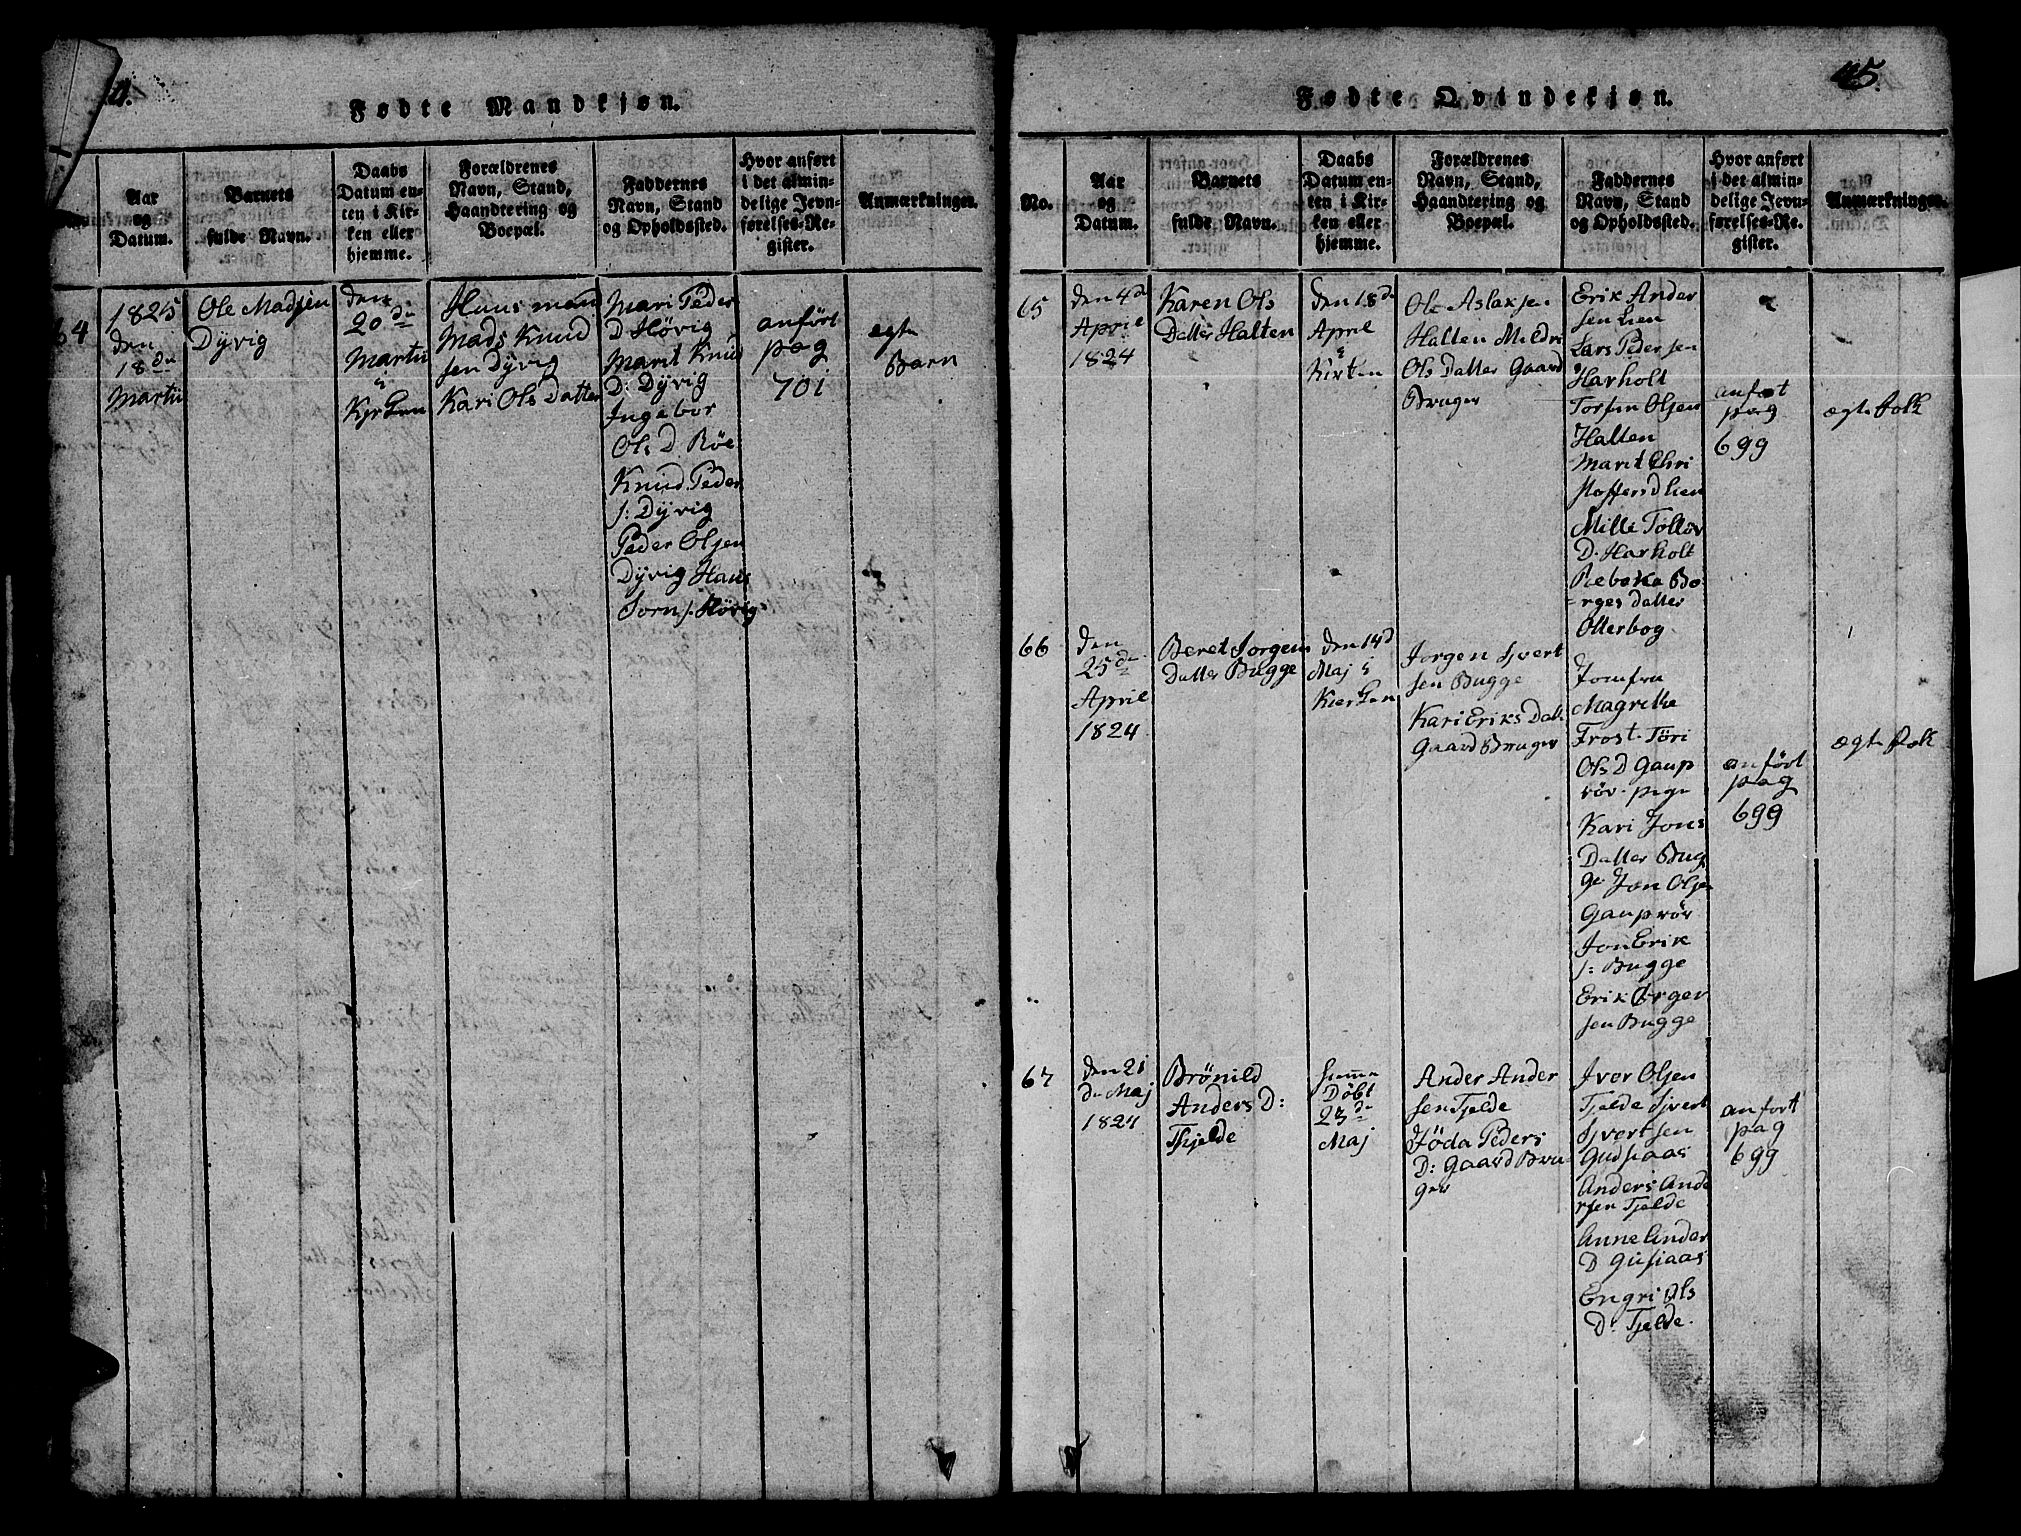 4.
Fødte Mandkjøn.
Aar
og
Datum.
Barnets
fulde Navn.
Daabs
Datum en-
ten i Kir-
ken eller
hjemme.
Forældrenes
Navn, Stand,
Haandtering og
Boepæl.
Faddernes
Navn, Stand
og Opholdssted.
Hvor anført
i det almin-
delige Jevn-
førelses-Re-
gister.
Anmærkninger.
64
1825
den
18 de
Martii
Ole Madsen
Dÿvig
den
20 de
Martii
i
Kirken
Huus mand
Mads Knud
sen Dÿvig
Kari Ols Datter
Mari Peder
D Høvig
Marit Knud
D: Dÿvig
Ingebor
Ols D. Röe
Knud Peder
s: Dÿvig
Peder Olsen
Dÿvig Hans
Jorn s. Høvig
anført
pag
701
egte
Barn
45.
Fødte Qvindekjøn.
No.
Aar
og
Datum.
Barnets
fulde Navn.
Daabs
Datum en-
ten i Kir-
ken eller
hjemme.
Forældrenes
Navn, Stand,
Haandtering og
Boepæl.
Faddernes
Navn, Stand
og Opholdssted.
Hvor anført
i det almin-
delige Jevn-
førelses-Re-
gister.
Anmærkninger.
65
den 4 d
April
1824
Karen Ols
Datter Halten
den 18 d
April
i
Kirken
Ole Aslaksen
Halten Mildri
Ols Datter Gaard
Bruger
Erik Ander
sen Lien
Lars Pedersen
Harholt
Torsten Olsen
Halten
Marit Chri
stoffersd Lien
Mille Tollov
D. Harholt
Rebeka Bo
=rges Datter
Otterbog
anført
pag
699
egte Folk
66
den
25 de
April
1824
Beret Jorgens
Datter Bugge
den 14 d
Maj i
Kierken
Jorgen Sjvert
sen Bugge
Kari Eriks Datt
Gaard Bruger
Jomfru
Magrethe
Frost. Töri
Ols D Gaup
rör. pige
Kari Jons
Datter Bug
ge. Jon Olsen
Gauprör
Jon Erik
s: Bugge
Erik Ørger
sen Bugge
anført
pag
699
egte Folk
67
den 21
de Maj
1824
Brönild
Anders D:
Thjelde
hiemme
Döbt
23 de
Maj
Ander Ander
sen Tjelde
Jöda Peders
D: Gaard Bru
ger
Iver Olsen
Tjelde Sjvert
Sjvertsen
Gudsiaas
Anders Ande
rsen Tjelde
Anne Ander
D Gusiaas
Engri Ols
D: Tjelde.
anfort
pag
699